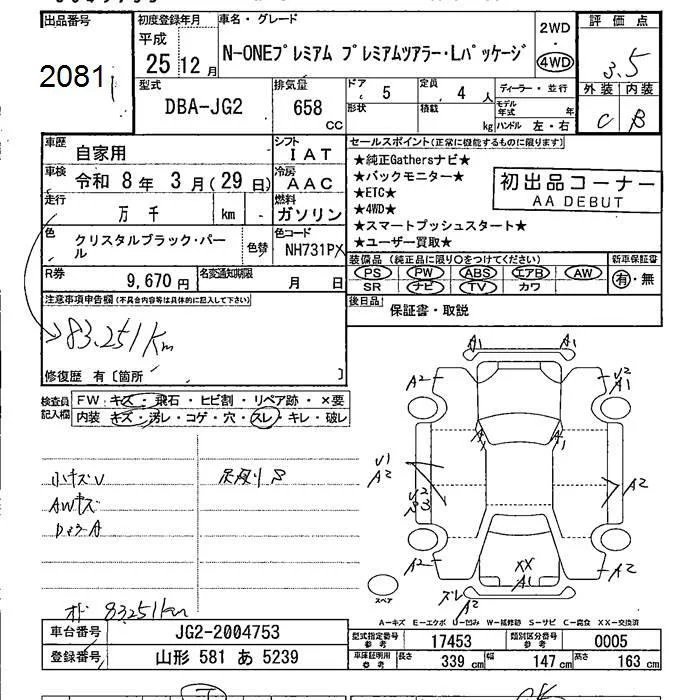 出品番号
2081
初度登録年月
平成
25 12月
車名・グレード
N-ONEプレミアム プレミアムツアラー・Lパッケージ
2WD
・
4WD
評価点
3.5
外装 内装
C B
型式
DBA-JG2
排気量
658
CC
ドア 5
定員 4 人
形状
積載
kg
ディーラー・並行
モデル年式 年
ハンドル 左・右
車歴
自家用
シフト
IAT
車検
令和 8年 3月(29日)
冷房
AAC
走行
万 千 km
燃料
ガソリン
色
クリスタルブラック・パール
色替
色コード
NH731PX
R券
9,670円
名変通知期限
月 日
セールスポイント(正常に機能するものに限ります)
★純正Gathersナビ★
★バックモニター★
★ETC★
★4WD★
★スマートプッシュスタート★
★ユーザー買取★
初出品コーナー
AA DEBUT
装備品(純正品に限り○をつけてください)
PS PW ABS エアB AW
SR ナビ TV カワ
新車保証書
有・無
後日品
保証書・取説
注意事項申告欄(不具合内容等は具体的に記入して下さい)
83.251km
修復歴 有〔箇所 〕
検査員記入欄
FW:キズ・飛石・ヒビ割・リペア跡・×要
内装・キズ・汚レ・コゲ・穴・スレ・キレ・破レ
小キズU
AWキズ
A1 A1
A2
U2
A1
A1 A1
U1
A2
U2
A2
A2 A2
XX
A1
ズレ
A2
スペア
A-キズ E-エクボ U-凹み W-補修跡 S-サビ C-腐食 XX-交換済
83251km
車台番号
JG2-2004753
登録番号
山形 581 あ 5239
型式指定番号
参考
17453
類別区分番号
参考
0005
車庫証明用
参考
長さ 339 cm
幅 147 cm
高さ 163 cm